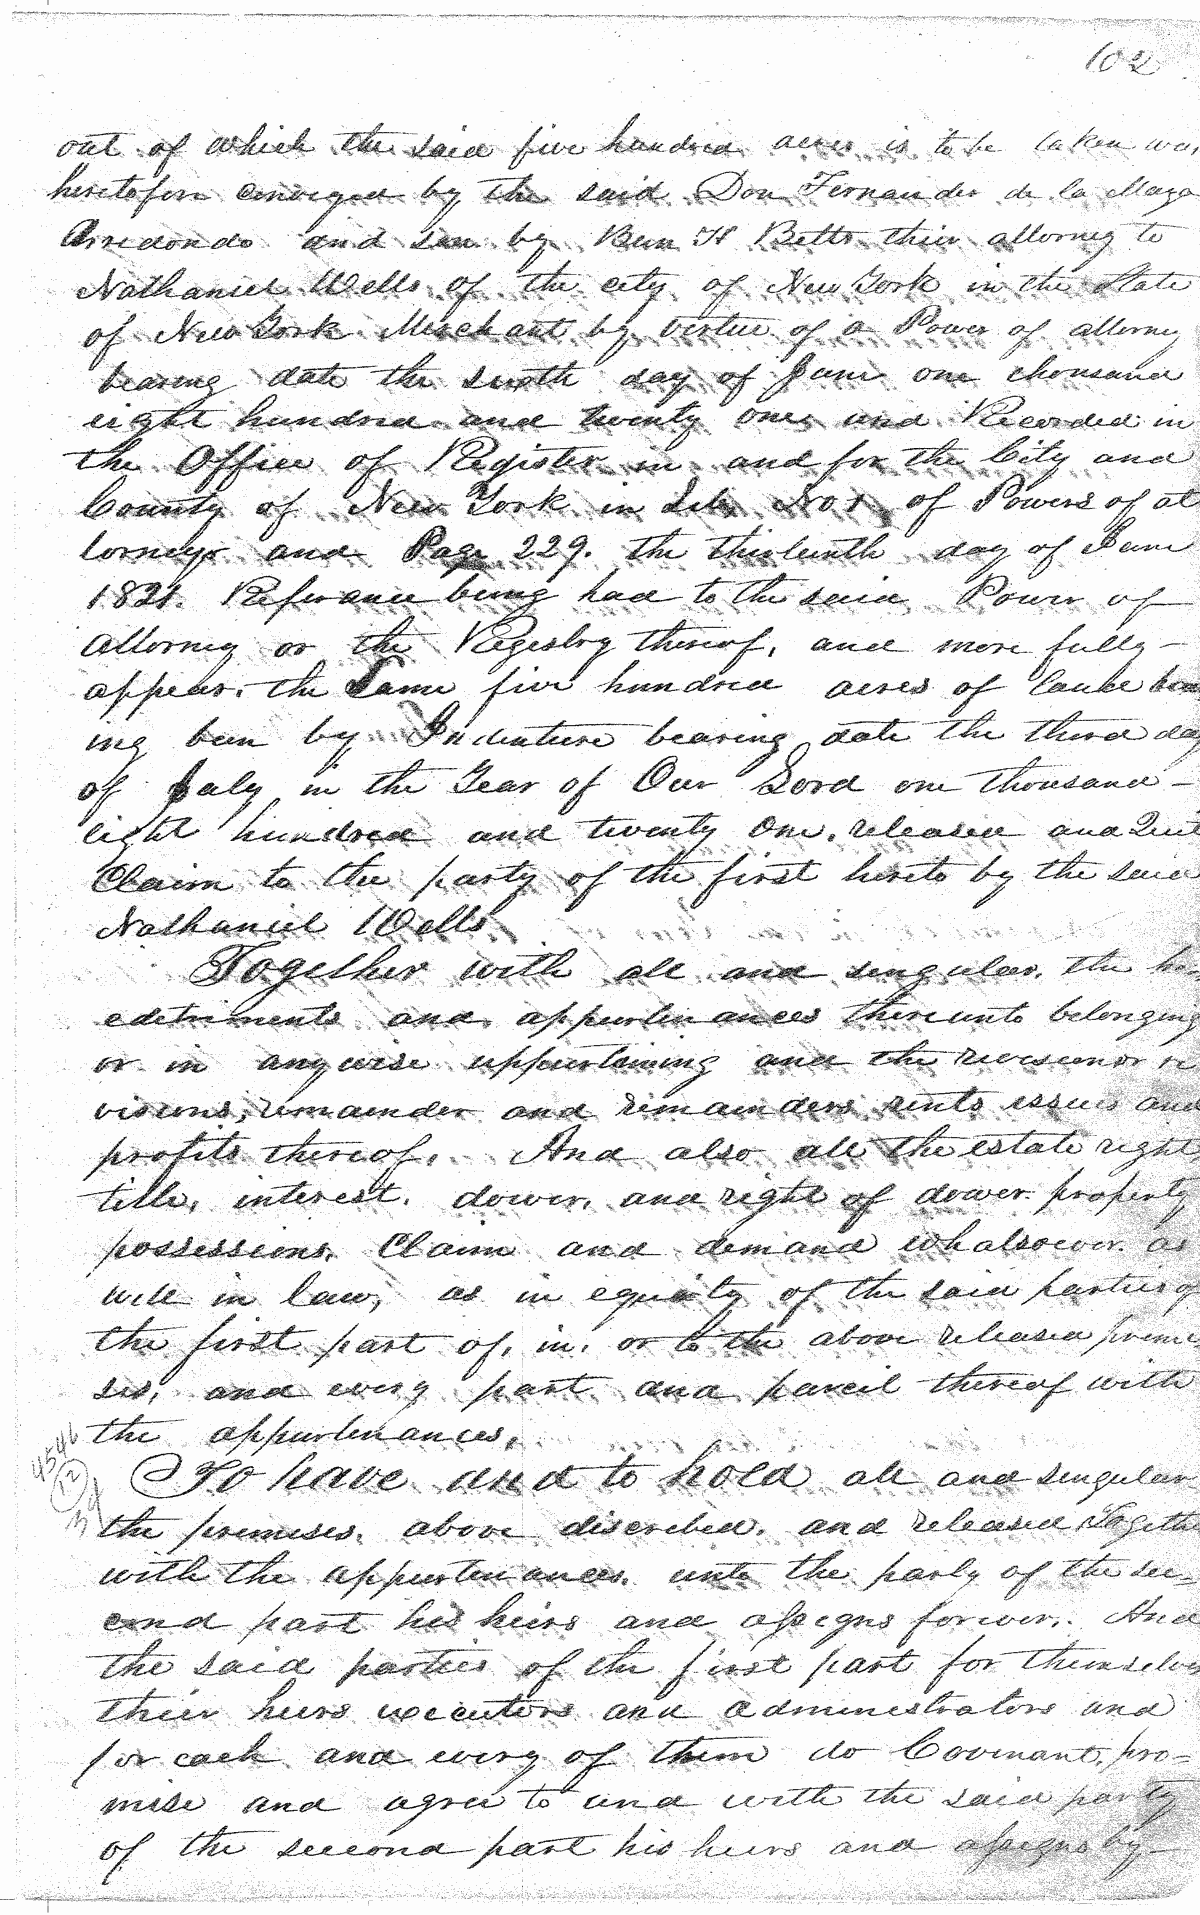 102
out of which the said five hundred acres is to be taken was
heretofore conveyed by the said Don Fernander de la Maza
Arredondo and son by Ben H Betts their attorney to
Nathaniel Wells of the city of New York in the State
of New York Merchant by virtue of a Power of attorney
bearing date the sixth day of June one thousand
eight hundred and twenty one, and Recorded in
the Office of Register in and for the City and
County of New York in Lib. No 1 of Powers of at
torneys and Page 229. the thirteenth day of June
1821. Reference being had to the said Power of
Attorney or the Registry thereof, and more fully
appear. the same five hundred acres of land hav
ing been by Indenture bearing date the third day
of July in the Year of Our Lord one thousand
eight hundred and twenty One. released and Quit
Claim to the party of the first hereto by the said
Nathaniel Wells.
Together with all and singular. the her
editriments and appurtenances thereunto belonging
or in anywise appurtaining and the revision or re
visions, remainder and remainders rents issues and
profits thereof. And also all the estate right
title, interest. dower, and right of dower property
possessions. Claim and demand whatsoever. as
well in law, as in equity of the said parties of
the first part of, in, or to the above released premi
ses, and every part and parcel thereof with
the appurtenances.
4546
12
39
To have and to hold all and singular
the premises. above discribed. and released Together
with the appurtenances. unto the party of the sec
cond part his heirs and assigns forever. And
the said parties of the first part for themselves
their heirs executors and administrators and
for each and every of them do Covenant, pro-
mise and agree to and with the said party
of the second part his heirs and assigns by